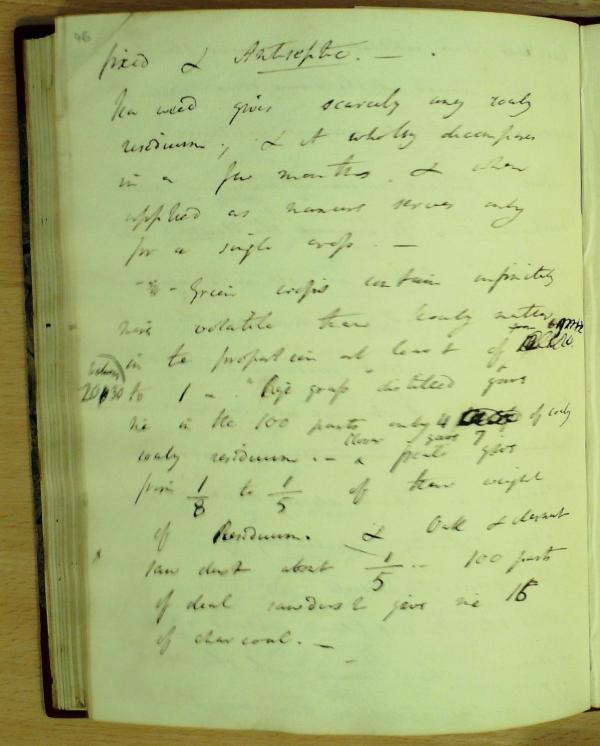 46
fixed & Antiseptic. —
Sea weed gives scarcely any coaly
residuum; & it wholly decomposes
in a few months. & when
applied as manure serves only
for a single crop. —
Green crops contain infinitely
more volatile than coaly matter
in the proportion at least of from
between 20 & 30 to 1 — "Rye grass" distilled gave
me in the 100 parts only 4 of coaly
coaly residuum. — Clover gave 7
peats give
from 1/8 to 1/5 of their weight
of Residuum. & Oak &
saw dust about 1/5 — 100 parts
of deal sawdust gave me 15
of charcoal. —